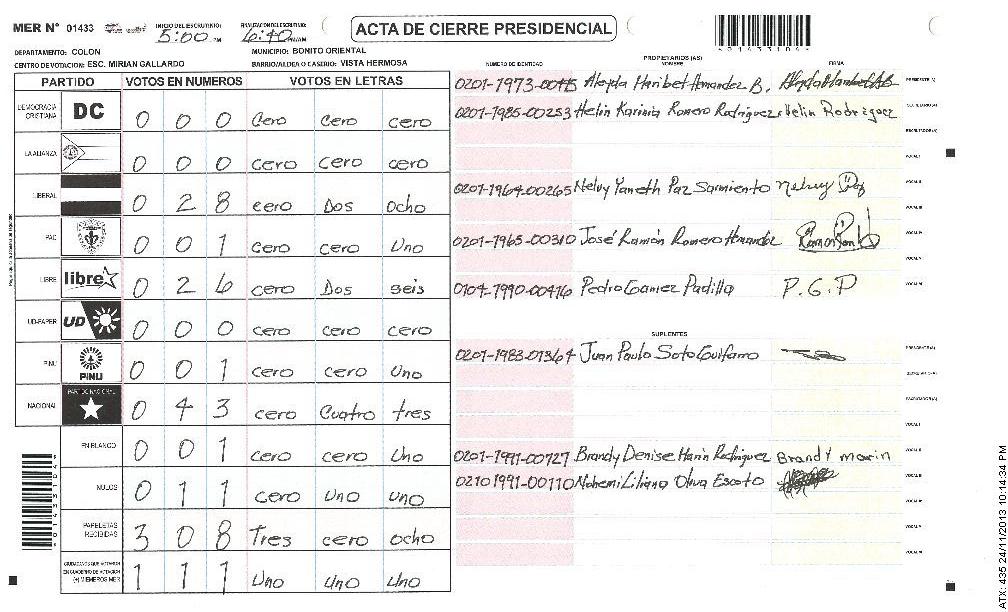 MER N° 01433 INICIO DEL ESCRUTINIO: 5:00 PM FINALIZACION DEL ESCRUTINIO: 6:40 PM/AM ACTA DE CIERRE PRESIDENCIAL
DEPARTAMENTO: COLON MUNICIPIO: BONITO ORIENTAL
CENTRO DE VOTACION: ESC. MIRIAN GALLARDO BARRIO/ALDEA O CASERIO: VISTA HERMOSA
PARTIDO VOTOS EN NUMEROS VOTOS EN LETRAS
DEMOCRACIA CRISTIANA DC 0 0 0 cero cero cero
LA ALIANZA 0 0 0 cero cero cero
LIBERAL 0 2 8 cero Dos ocho
PAC 0 0 1 cero cero uno
LIBRE libre 0 2 6 cero Dos seis
UD-FAPER UD 0 0 0 cero cero cero
PINU PINU 0 0 1 cero cero uno
NACIONAL PARTIDO NACIONAL 0 4 3 cero Cuatro tres
EN BLANCO 0 0 1 cero cero uno
NULOS 0 1 1 cero uno uno
PAPELETAS RECIBIDAS 3 0 8 Tres cero ocho
CIUDADANOS QUE VOTARON EN CUADERNO DE VOTACION (+) MIEMBROS MER 1 1 1 Uno Uno Uno
PROPIETARIOS (AS)
NUMERO DE IDENTIDAD NOMBRE FIRMA
0201-1973-00415 Aleyda Maribet Hernandez B. PRESIDENTE (A)
0201-1985-00253 Helin Karinia Romero Rodriguez Helin Rodriguez SECRETARIO (A)
ESCRUTADOR (A)
VOCAL I
0201-1964-00265 Nelvy Yaneth Paz Sarmiento Nelvy Paz VOCAL II
VOCAL III
0201-1965-00310 José Ramón Romero Hernandez VOCAL IV
VOCAL V
0104-1990-00416 Pedro Gamez Padilla P.G.P VOCAL VI
SUPLENTES
0201-1983-01364 Juan Paulo Soto Guifarro PRESIDENTE (A)
SECRETARIO (A)
ESCRUTADOR (A)
VOCAL I
0201-1991-00727 Brandy Denise Marin Rodriguez Brandy marin VOCAL II
0210 1991-00110 Nohemi Liliana Oliva Escoto VOCAL III
VOCAL IV
VOCAL V
VOCAL VI
ATX: 435 24/11/2013 10:14:34 PM